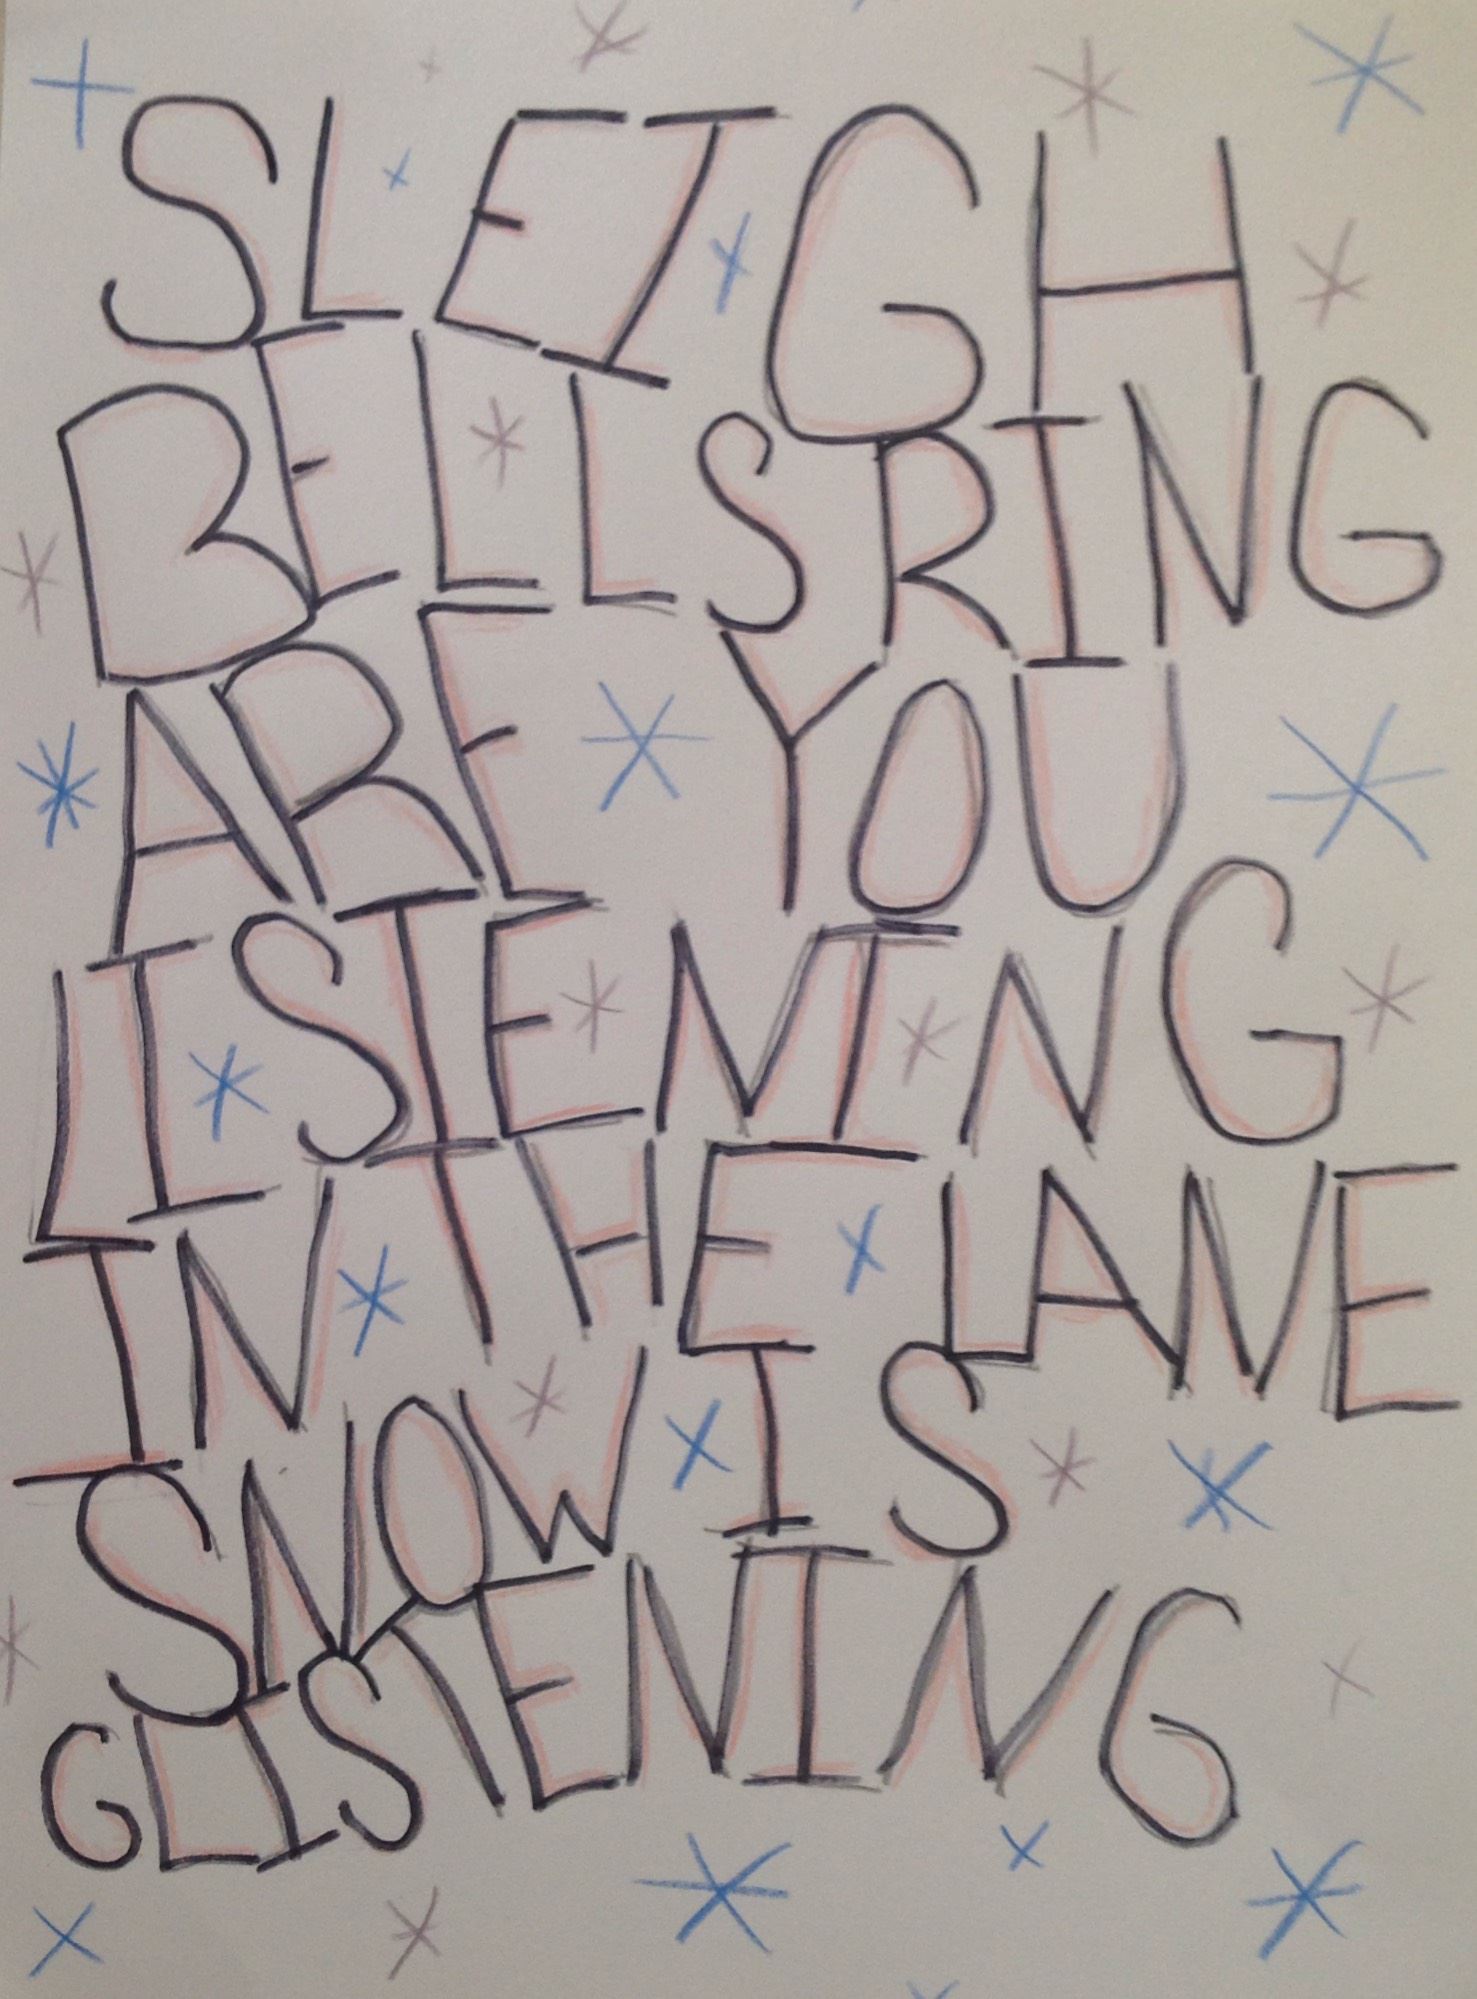 SLEIGH
BELLS RING
ARE YOU
LISTENING
IN THE LANE
SNOW IS
GLISTENING